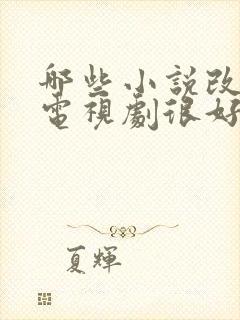 哪些小説改
電視劇很好
夏輝